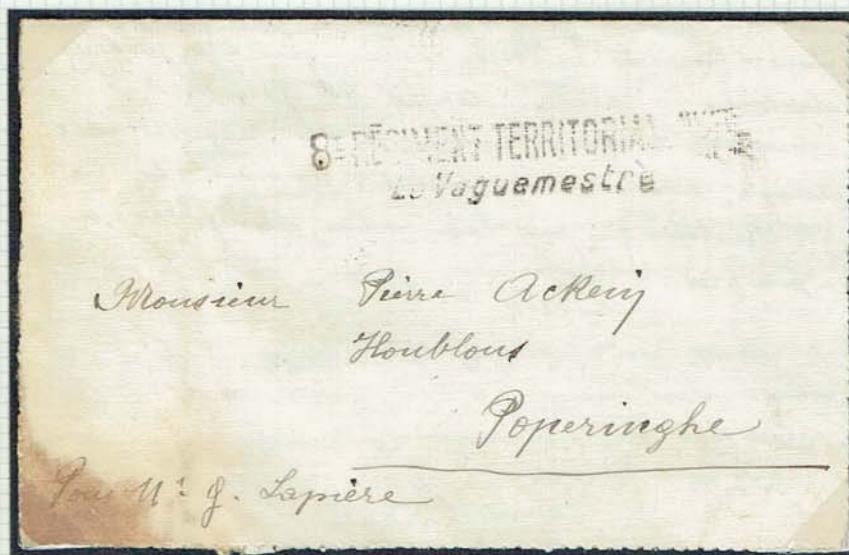 8e RÉGIMENT TERRITORIAL
Le Vaguemestre
Monsieur Pierre Ackein
Houblons
Poperinghe
Pour Mr J. Lapière